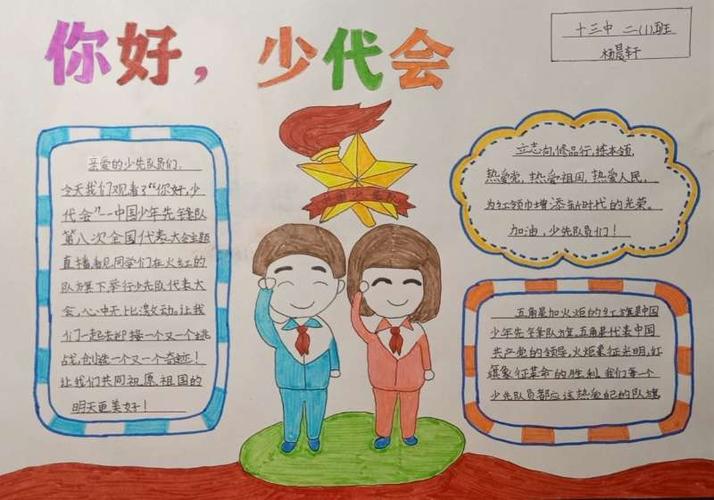 你好，少代会
十三中 二(1)班
杨晨轩
亲爱的少先队员们：
今天我们观看了“你好，少
代会”--中国少年先锋队
第八次全国代表大会主题
直播看见同学们在火红的
队旗下举行少先队代表大
会，心中无比激动。让我
们一起去迎接一个又一个挑
战，创造一个又一个奇迹！
让我们共同祝愿祖国的
明天更美好！
立志向，修品行，练本领，
热爱党，热爱祖国，热爱人民，
为红领巾增添新时代的光荣。
加油，少先队员们！
五角星加火炬的红旗是中国
少年先锋队队旗，五角星代表中国
共产党的领导，火炬象征光明，红
旗象征革命的胜利。我们每一个
少先队员都应该热爱自己的队旗